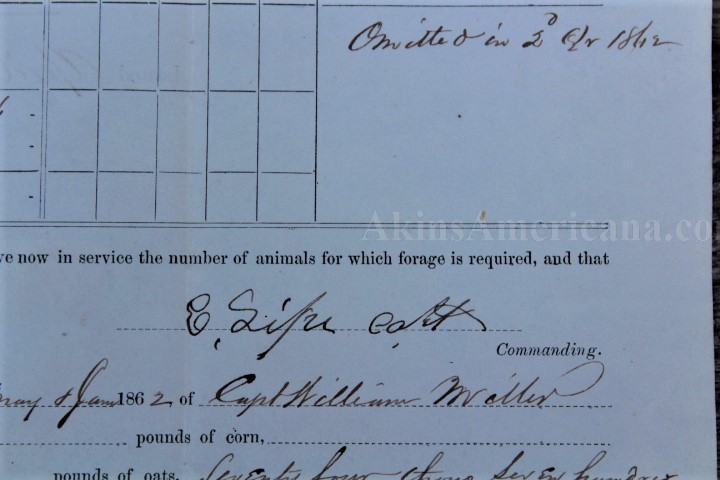 Omitted in 2D Qr 1862
AkinsAmericana.co
ve now in service the number of animals for which forage is required, and that
E. Sipe
Commanding.
may & June 1862 of Capt William Miller
pounds of corn,
pounds of oats, Seventy four thous Seven hundred